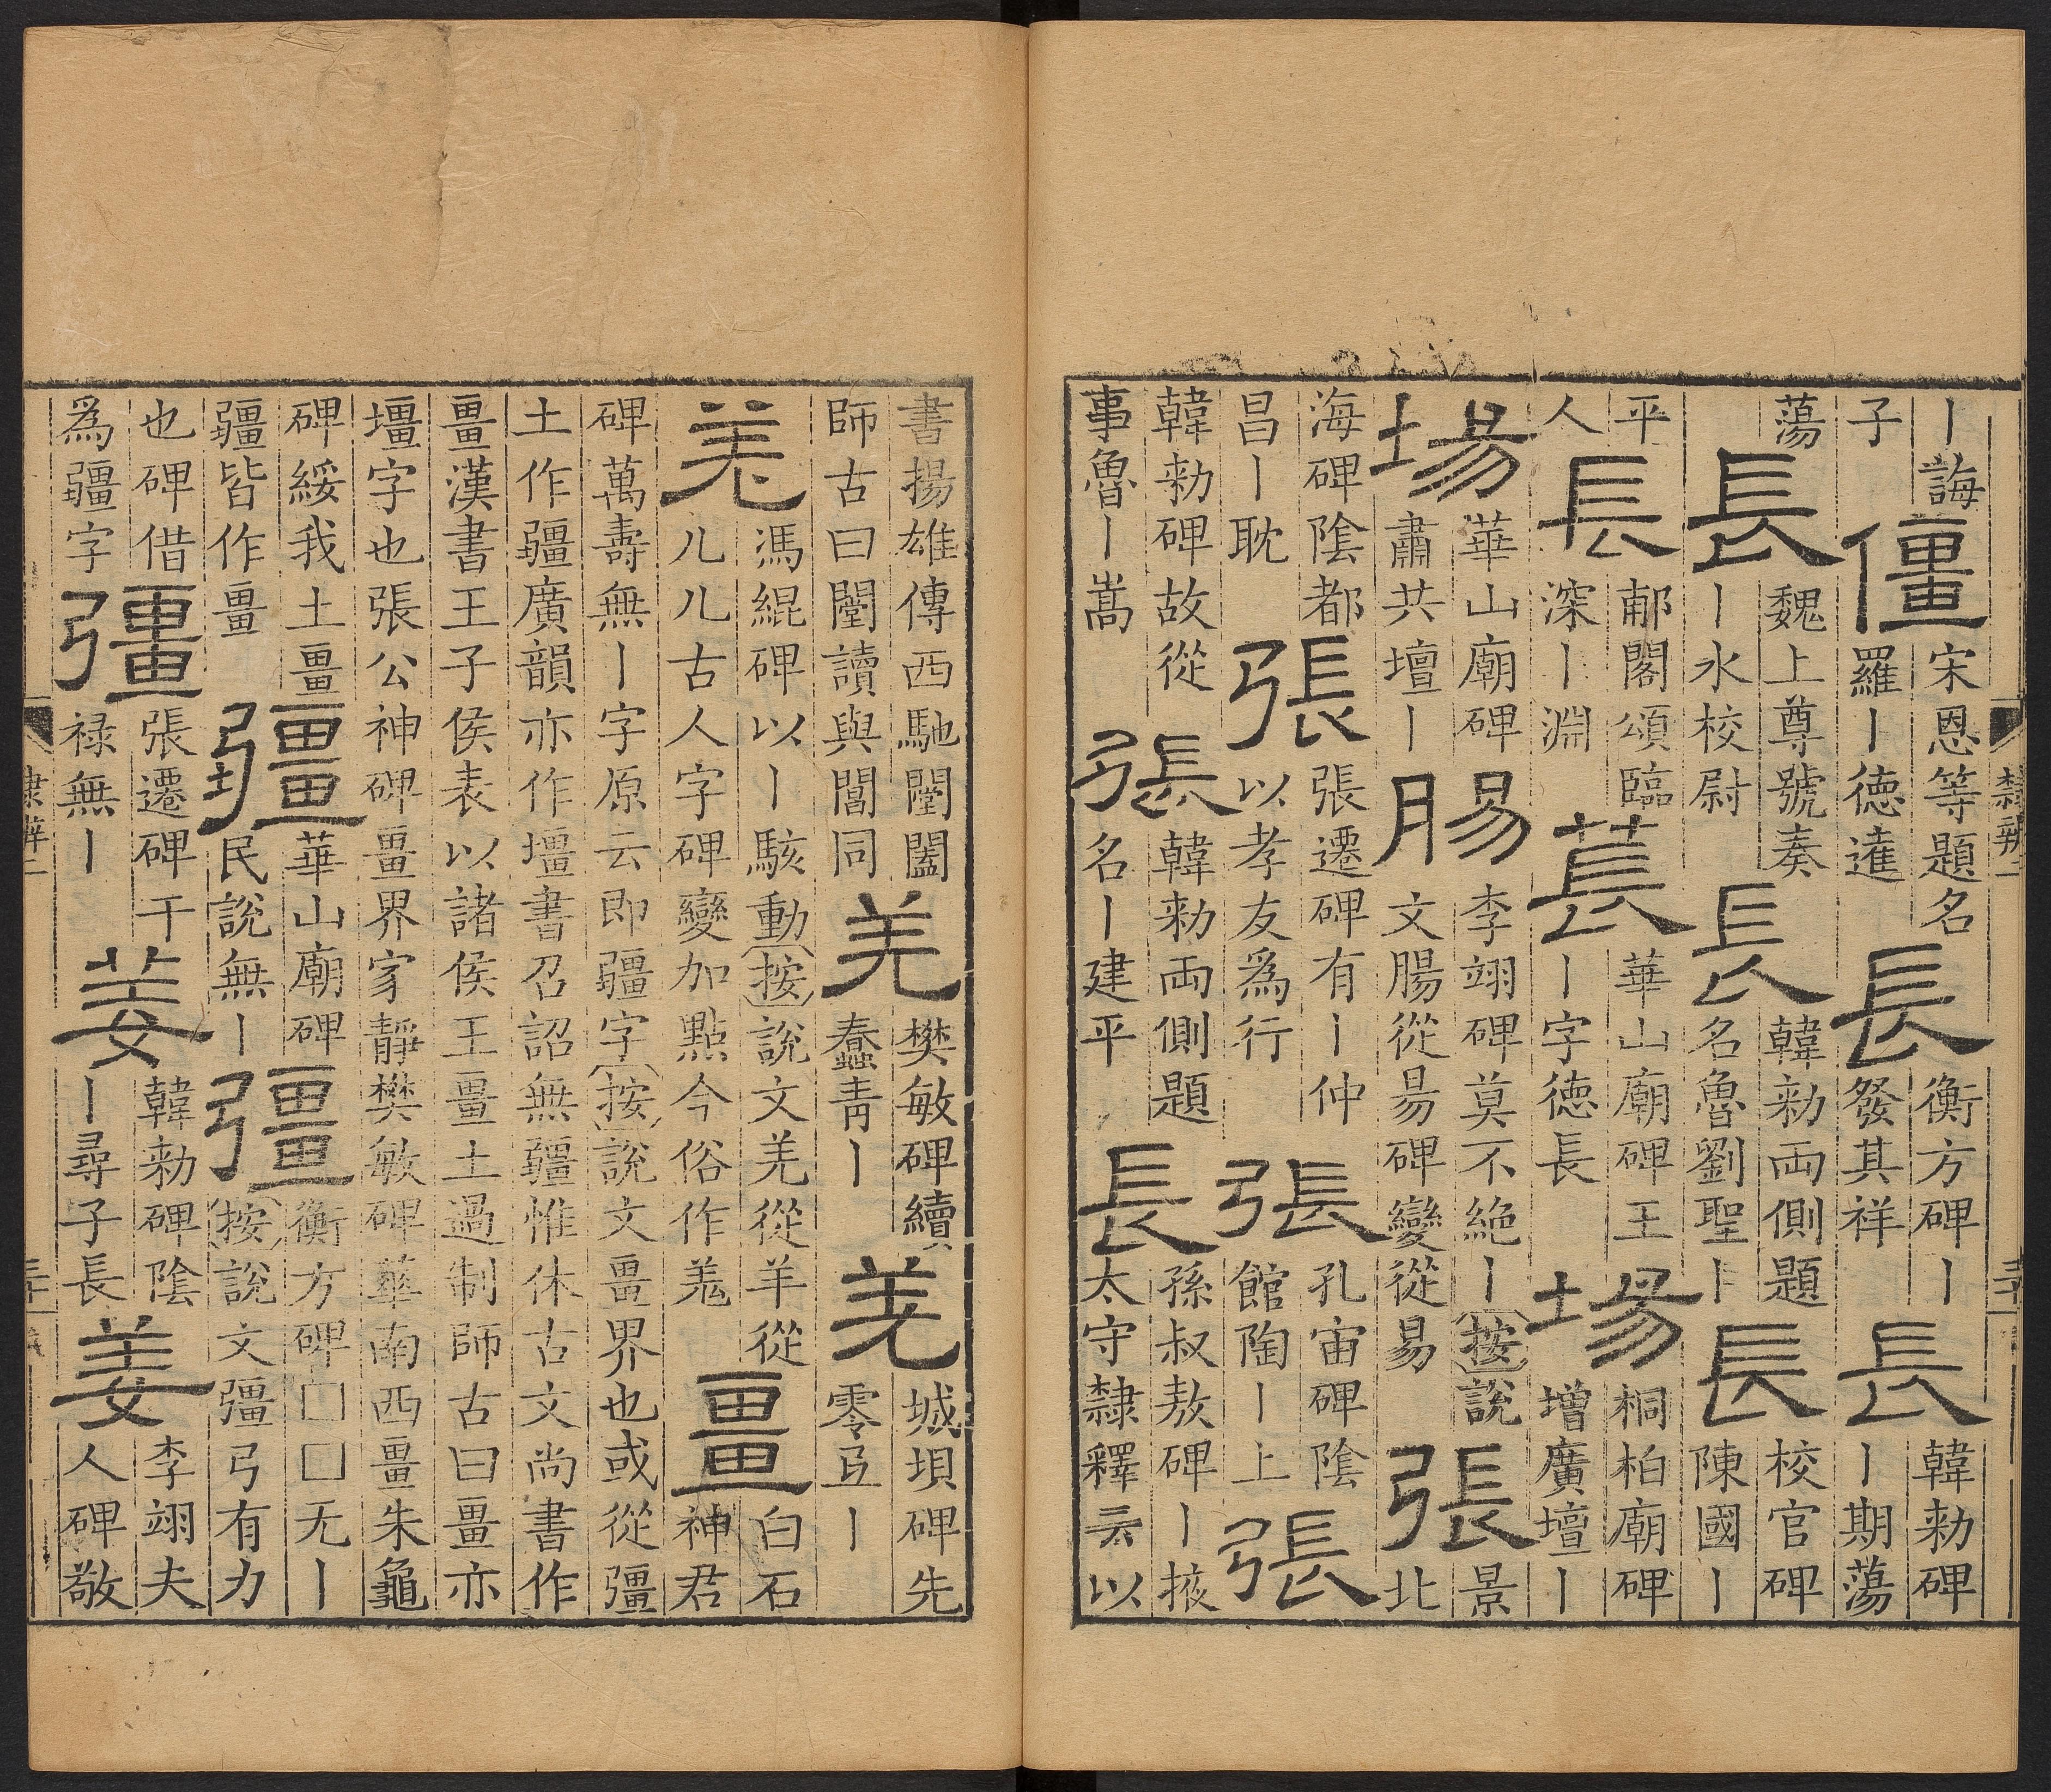 丨誨子僵宋恩等題名羅丨德達長衡方碑丨發其祥長韓勑碑丨期蕩
蕩長魏上尊號奏丨水校尉長韓勑両側題名魯劉聖丨長校官碑陳國丨
平人長郙閣頌臨深丨淵萇華山廟碑王丨字德長場桐柏廟碑增廣壇丨
場華山廟碑肅共壇丨腸李翊碑莫不絶丨按說文腸從昜碑變從易張景北
海碑陰都昌丨耽張張遷碑有丨仲以孝友為行張孔宙碑陰館陶丨上張
韓勑碑故從事魯丨嵩張韓勑両側題名丨建平長孫叔敖碑丨掖太守隸釋云以
隸辨二
三十
書揚雄傳西馳闛闔師古曰闛讀與閶同羌樊敏碑續蠢青丨羌城垻碑先零丨
羌馮緄碑以丨駭動按說文羌從羊從儿儿古人字碑變加點今俗作羗畺白石神君
碑萬壽無丨字原云即疆字按說文畺界也或從彊土作疆廣韻亦作壃書召詔無疆惟休古文尚書作
畺漢書王子侯表以諸侯王畺土過制師古曰畺亦壃字也張公神碑畺界家靜樊敏碑華南西畺朱龜
碑綏我土畺疆皆作畺疆華山廟碑民說無丨彊衡方碑□□无丨按說文彊弓有力
也碑借為疆字彊張遷碑干祿無丨姜韓勑碑陰丨尋子長姜李翊夫人碑敬
隸辨二
三十